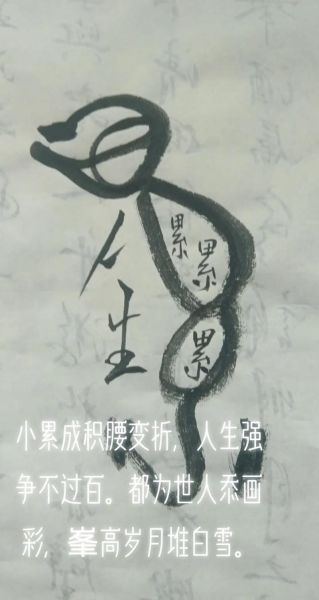 人生
累
累
累
小累成积腰变折，人生强
争不过百。都为世人忝画
彩，峯高岁月堆白雪。